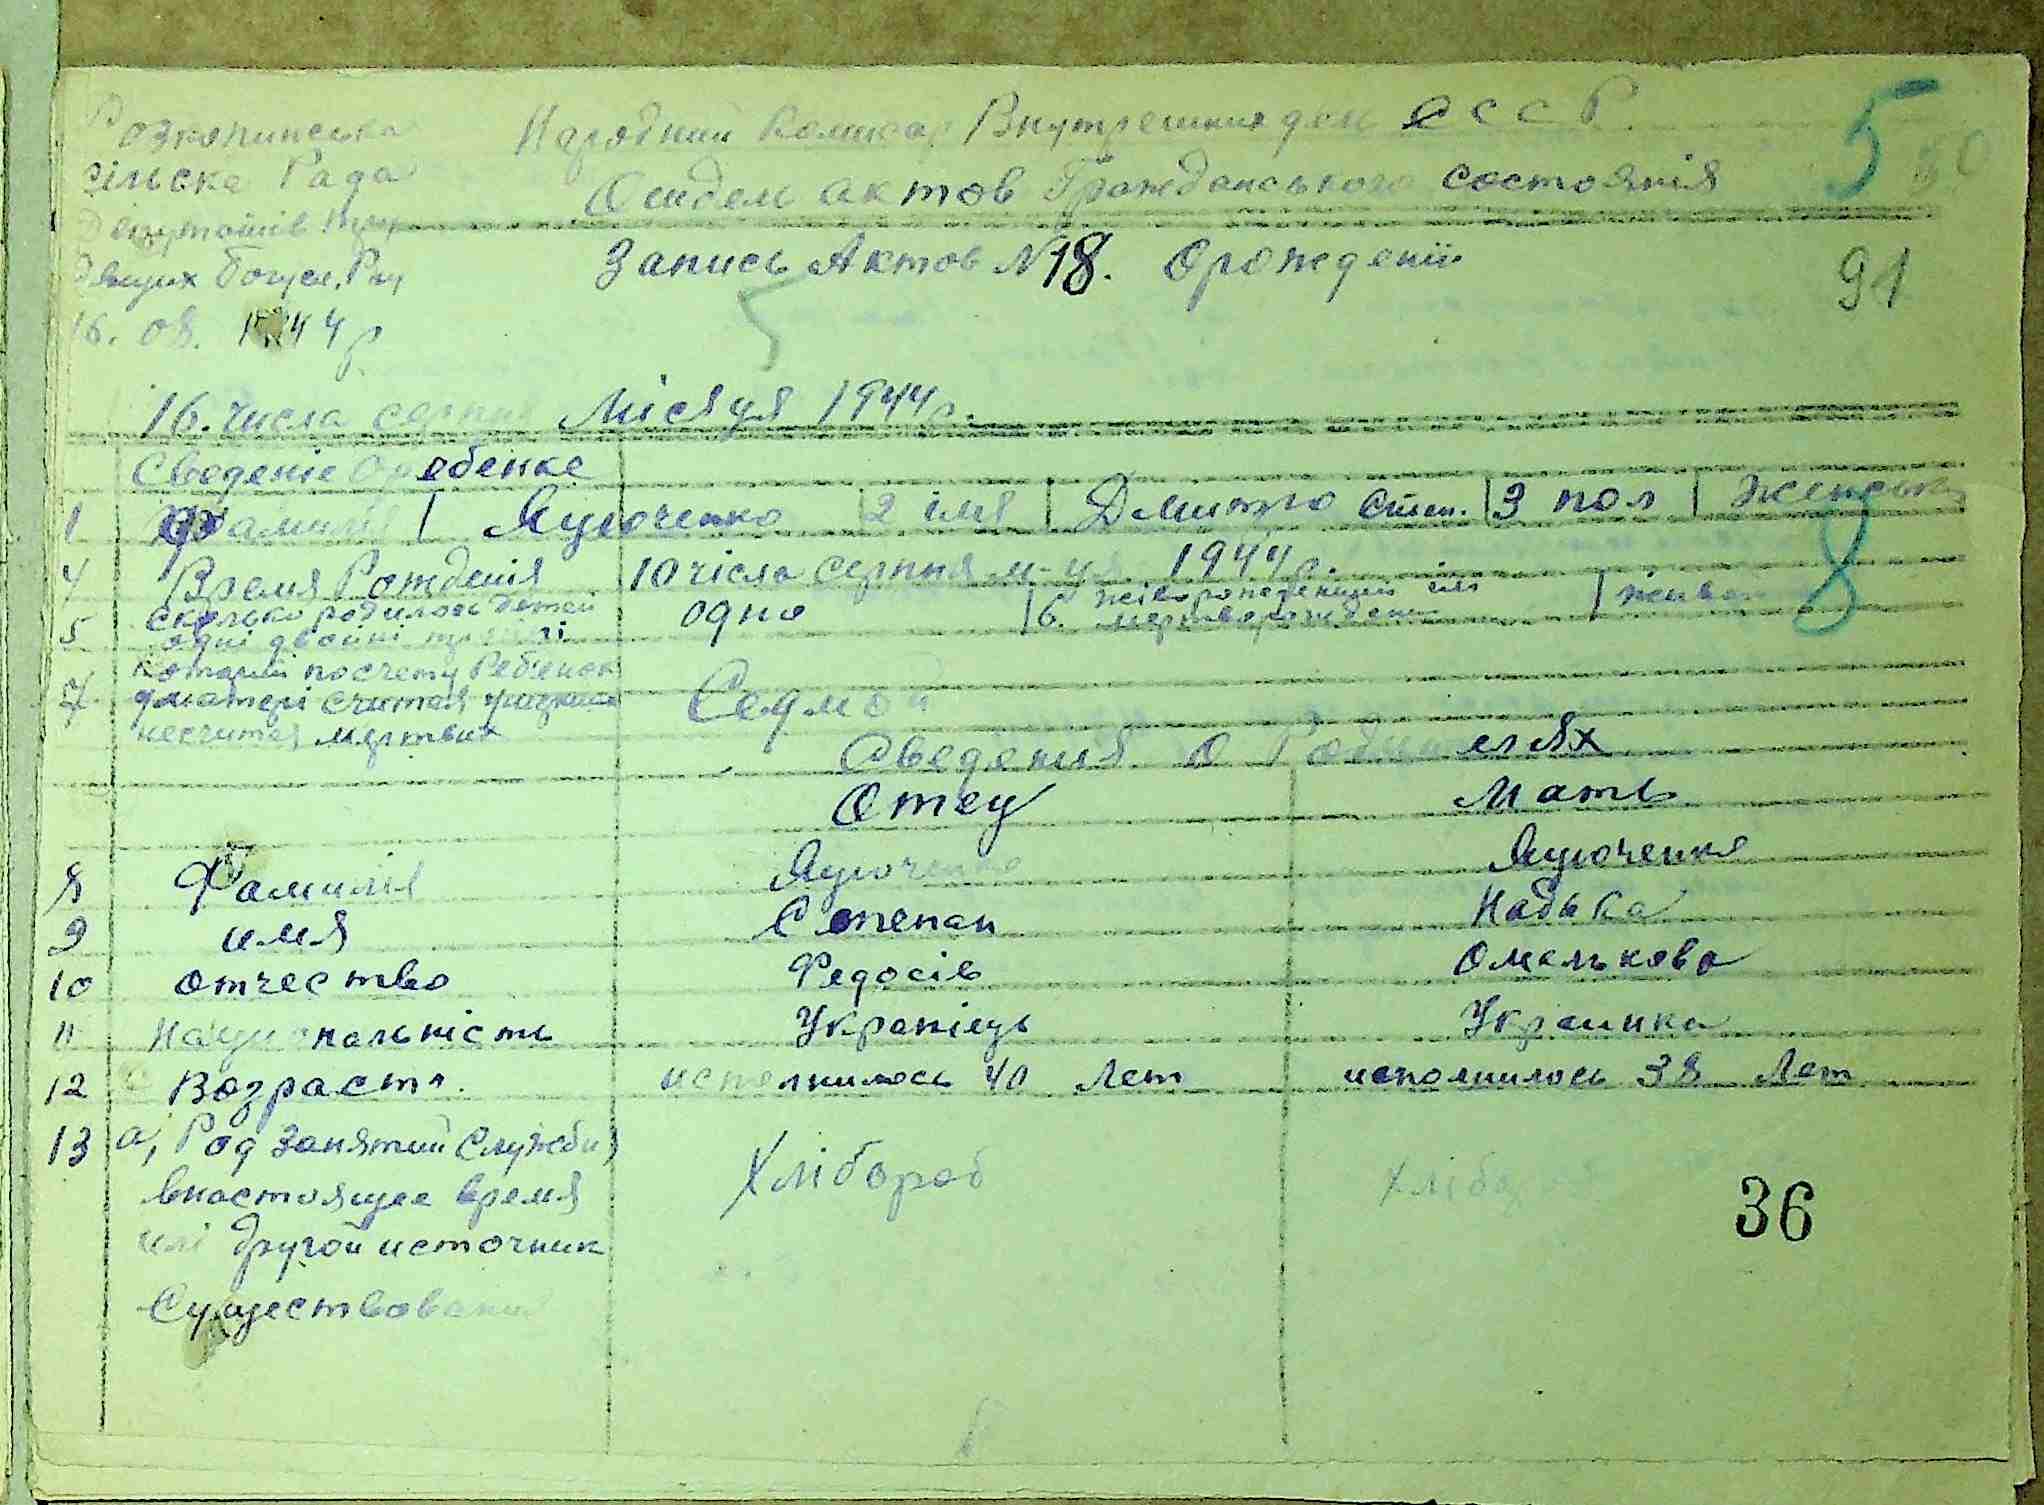 Розкопинська
сільска Рада
Депутатів тру
дящих Богусл. Р-ну
16. 08. 1944 р
Народний Комисар Внутрешних дел СССР
Отдел актов Гражданського состоянія
5
Запись Актов № 18. О рождениї
91
16. числа серпня місяця 1944 р.
Сведеніе О ребенке
1 Фамилія Яцюченко 2 імя Дмитро Степ. 3 пол женськ
4 Время Рожденія 10 чісла серпня м-ця 1944 р.
8
5 сколько родилось детей одно 6. жіворожденний ілі живой
одні двойні тройні мертворожден
7 которий по счету Ребенок
у матері считая
не считая мертвих
Седмой
Сведения О Родителях
Отец Мать
8 Фамилія Яцюченко Яцюченко
9 имя Степан Надька
10 отчество Федосів Омелькова
11 Национальність Украпіець Украинка
12 Возраст. исполнилось 40 Лет исполнилось 38 Лет
13 а, Род Занятий Службы
в настоящее время
илі другой источник
Существования
Хлібороб Хлібороб
36